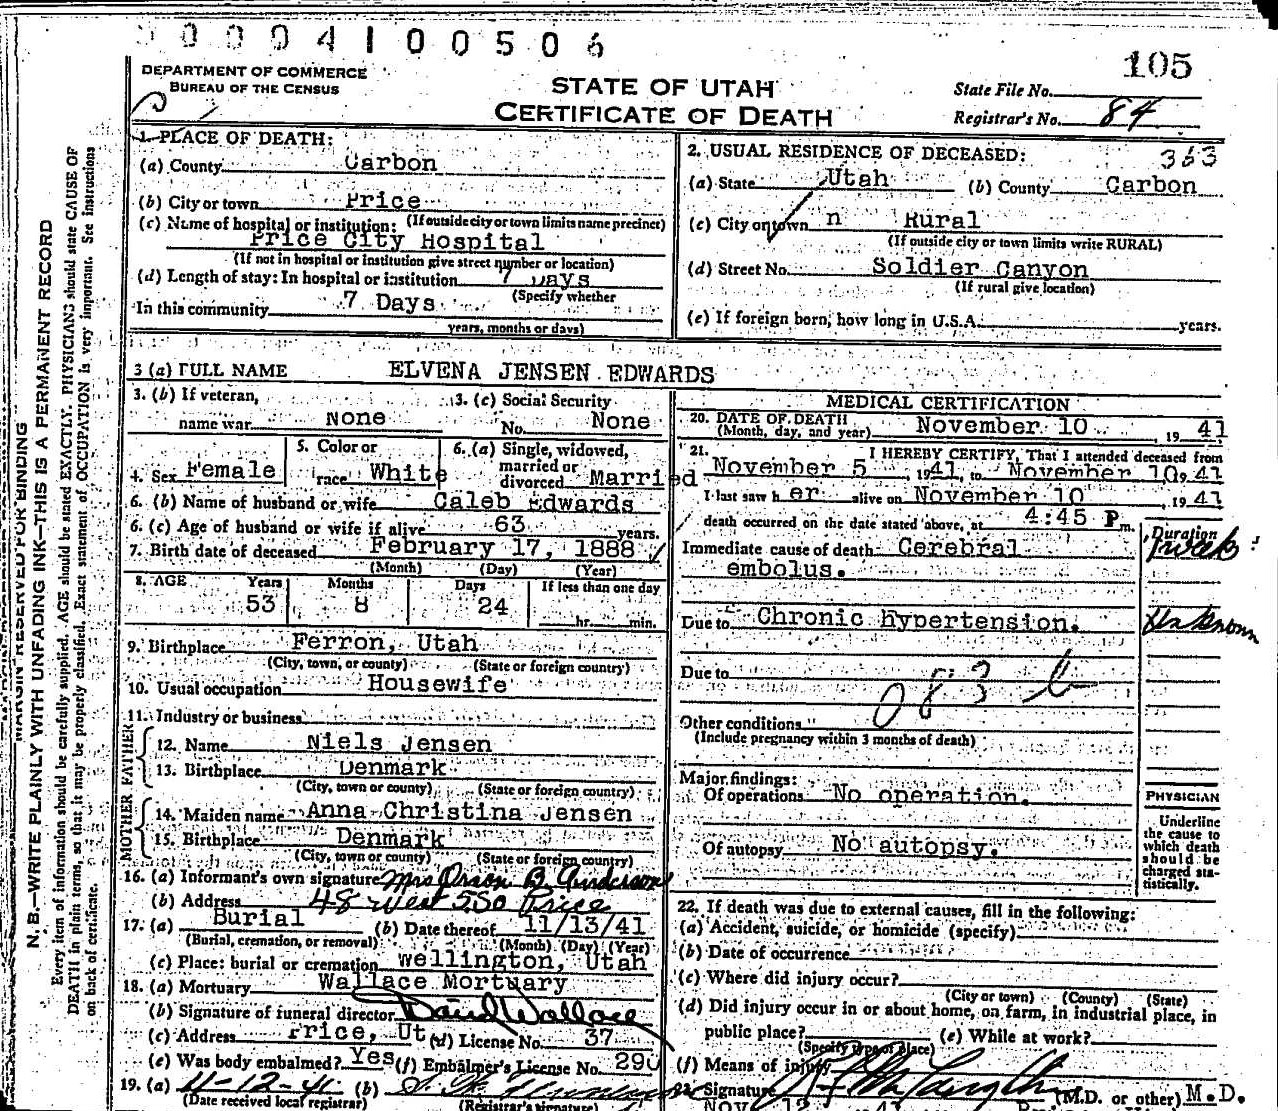 00004100506
105
DEPARTMENT OF COMMERCE
BUREAU OF THE CENSUS
STATE OF UTAH
CERTIFICATE OF DEATH
State File No.
Registrar's No. 84
1. PLACE OF DEATH:
(a) County Carbon
(b) City or town Price
(If outside city or town limits name precinct)
(c) Name of hospital or institution:
Price City Hospital
(If not in hospital or institution give street number or location)
(d) Length of stay: In hospital or institution 7 Days
(Specify whether
In this community 7 Days
years, months or days)
2. USUAL RESIDENCE OF DECEASED: 363
(a) State Utah (b) County Carbon
(c) City or town n Rural
(If outside city or town limits write RURAL)
(d) Street No. Soldier Canyon
(If rural give location)
(e) If foreign born, how long in U.S.A. years.
3 (a) FULL NAME ELVENA JENSEN EDWARDS
3. (b) If veteran,
name war None
3. (c) Social Security
No. None
4. Sex Female
5. Color or
race White
6. (a) Single, widowed,
married or
divorced Married
6. (b) Name of husband or wife Caleb Edwards
6. (c) Age of husband or wife if alive 63 years.
7. Birth date of deceased February 17, 1888
(Month) (Day) (Year)
8. AGE Years Months Days If less than one day
53 8 24 hr. min.
9. Birthplace Ferron, Utah
(City, town, or county) (State or foreign country)
10. Usual occupation Housewife
11. Industry or business
FATHER
12. Name Niels Jensen
13. Birthplace Denmark
(City, town or county) (State or foreign country)
MOTHER
14. Maiden name Anna Christina Jensen
15. Birthplace Denmark
(City, town or county) (State or foreign country)
16. (a) Informant's own signature Mrs Orson B Anderson
(b) Address 48 West 5 So Price
17. (a) Burial (b) Date thereof 11/13/41
(Burial, cremation, or removal) (Month) (Day) (Year)
(c) Place: burial or cremation Wellington, Utah
18. (a) Mortuary Wallace Mortuary
(b) Signature of funeral director David Wallace
(c) Address Price, Ut (d) License No. 37
(e) Was body embalmed? Yes (f) Embalmer's License No. 290
19. (a) 11-12-41 (b)
(Date received local registrar) (Registrar's signature)
MEDICAL CERTIFICATION
20. DATE OF DEATH
(Month, day, and year) November 10, 1941
21. I HEREBY CERTIFY, That I attended deceased from
November 5, 1941, to November 10, 41
I last saw her alive on November 10, 1941
death occurred on the date stated above, at 4:45 P m.
Duration
Immediate cause of death Cerebral 1 week
embolus.
Due to Chronic hypertension. Unknown
Due to
083 b
Other conditions
(Include pregnancy within 3 months of death)
Major findings:
Of operations No operation.
Of autopsy No autopsy.
PHYSICIAN
Underline
the cause to
which death
should be
charged sta-
tistically.
22. If death was due to external causes, fill in the following:
(a) Accident, suicide, or homicide (specify)
(b) Date of occurrence
(c) Where did injury occur?
(City or town) (County) (State)
(d) Did injury occur in or about home, on farm, in industrial place, in
public place? (e) While at work?
(Specify type of place)
(f) Means of injury
Signature (M.D. or other) M.D.
Nov 12 41
MARGIN RESERVED FOR BINDING
N. B.—WRITE PLAINLY WITH UNFADING INK—THIS IS A PERMANENT RECORD
Every item of information should be carefully supplied. AGE should be stated EXACTLY. PHYSICIANS should state CAUSE OF
DEATH in plain terms, so that it may be properly classified. Exact statement of OCCUPATION is very important. See instructions
on back of certificate.